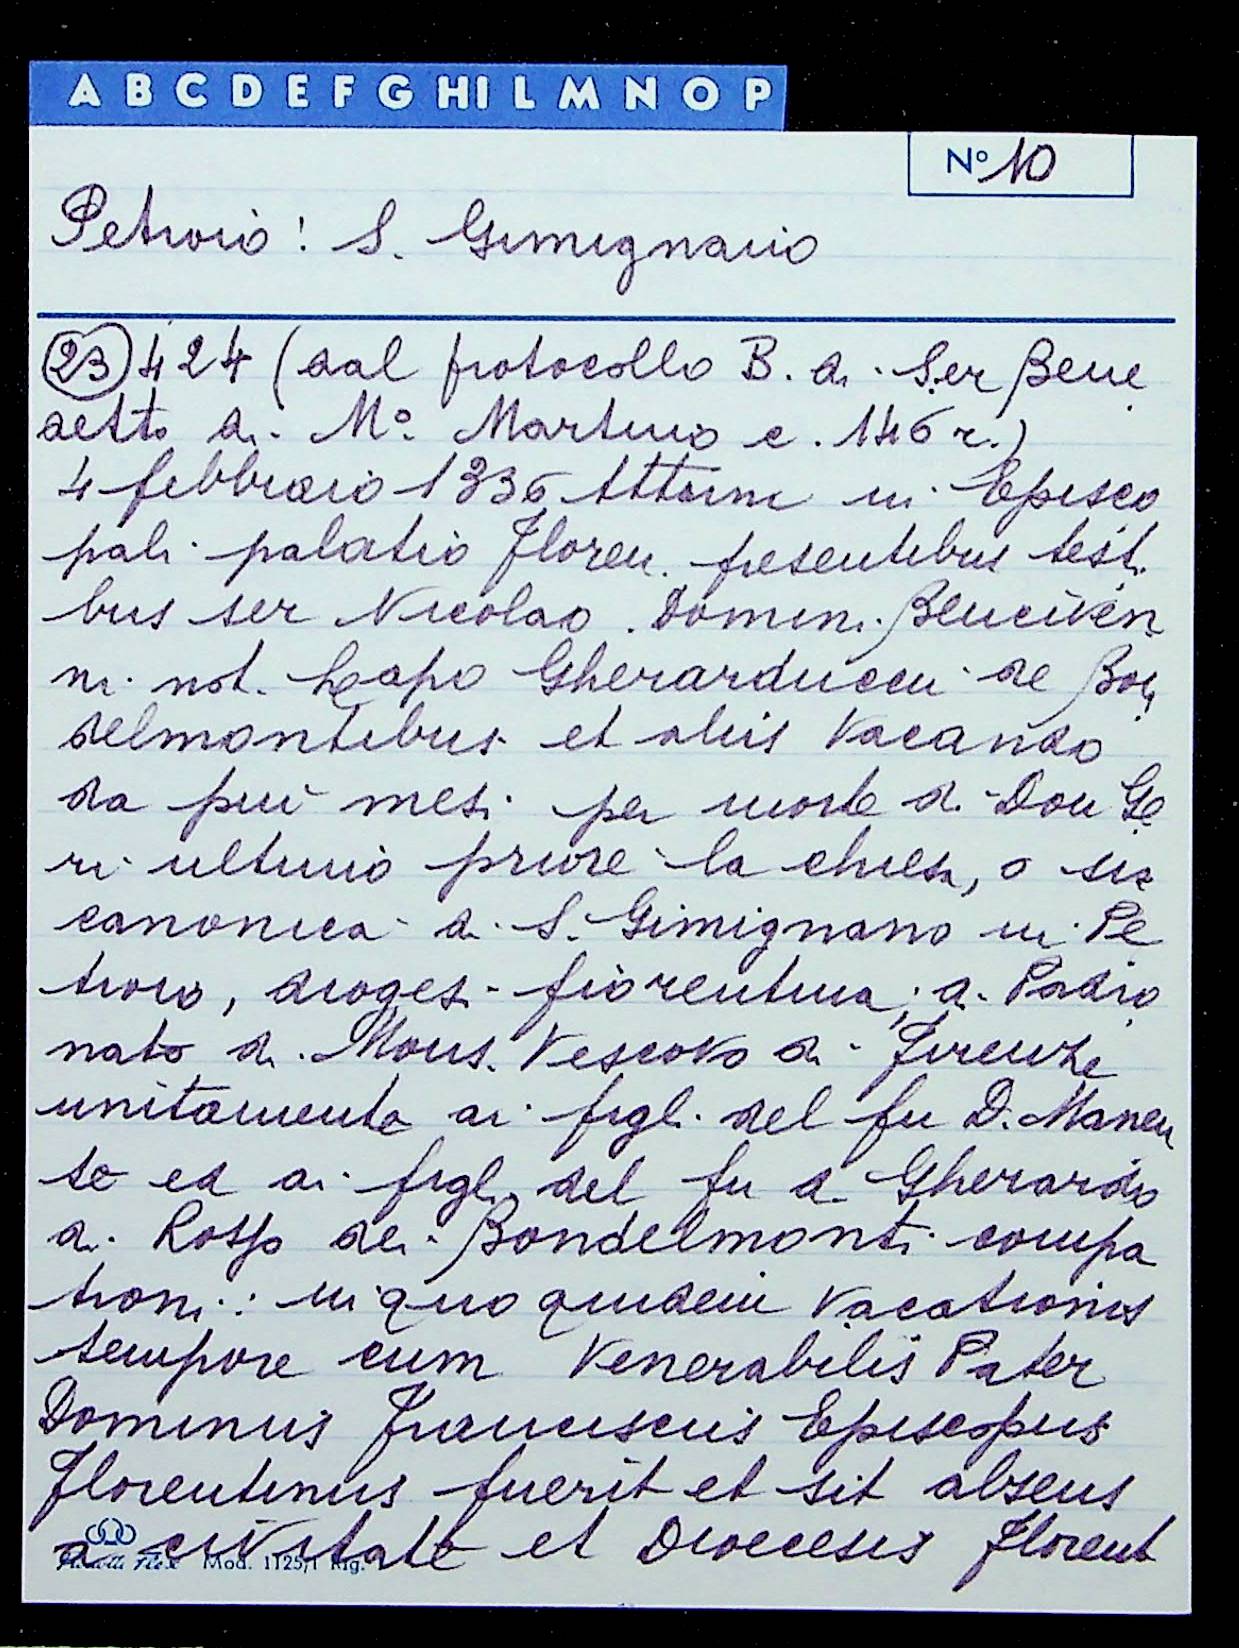 A B C D E F G HI L M N O P
N° 10
Petroio: S. Gimignano
(23) 424 (dal protocollo B. di Ser Bene
detto di M° Martino c. 146 r.)
4 febbraio 1336 Actum in Episco
pali palatio Floren. presentibus testi
bus ser Nicolao Domini Bencivên
ni not. Lapo Gherarduccii de Bon
delmontibus et aliis Vacando
da più mesi per morte di Don Ge
ri ultimo priore la chiesa, o sia
canonica di S. Gimignano in Pe
troio, diogesi fiorentina, di Padro
nato di Mons. Vescovo di Firenze
unitamente ai figli del fu D. Manen
te ed ai figli del fu d. Gherardo
di Rosso dei Bondelmonti compa
troni: in quo quidem vacationis
tempore cum Venerabilis Pater
Dominus Franciscus Episcopus
Florentinus fuerit et sit absens
a civitate et Diocesis Florent
Mod. 1125/1 Rig.